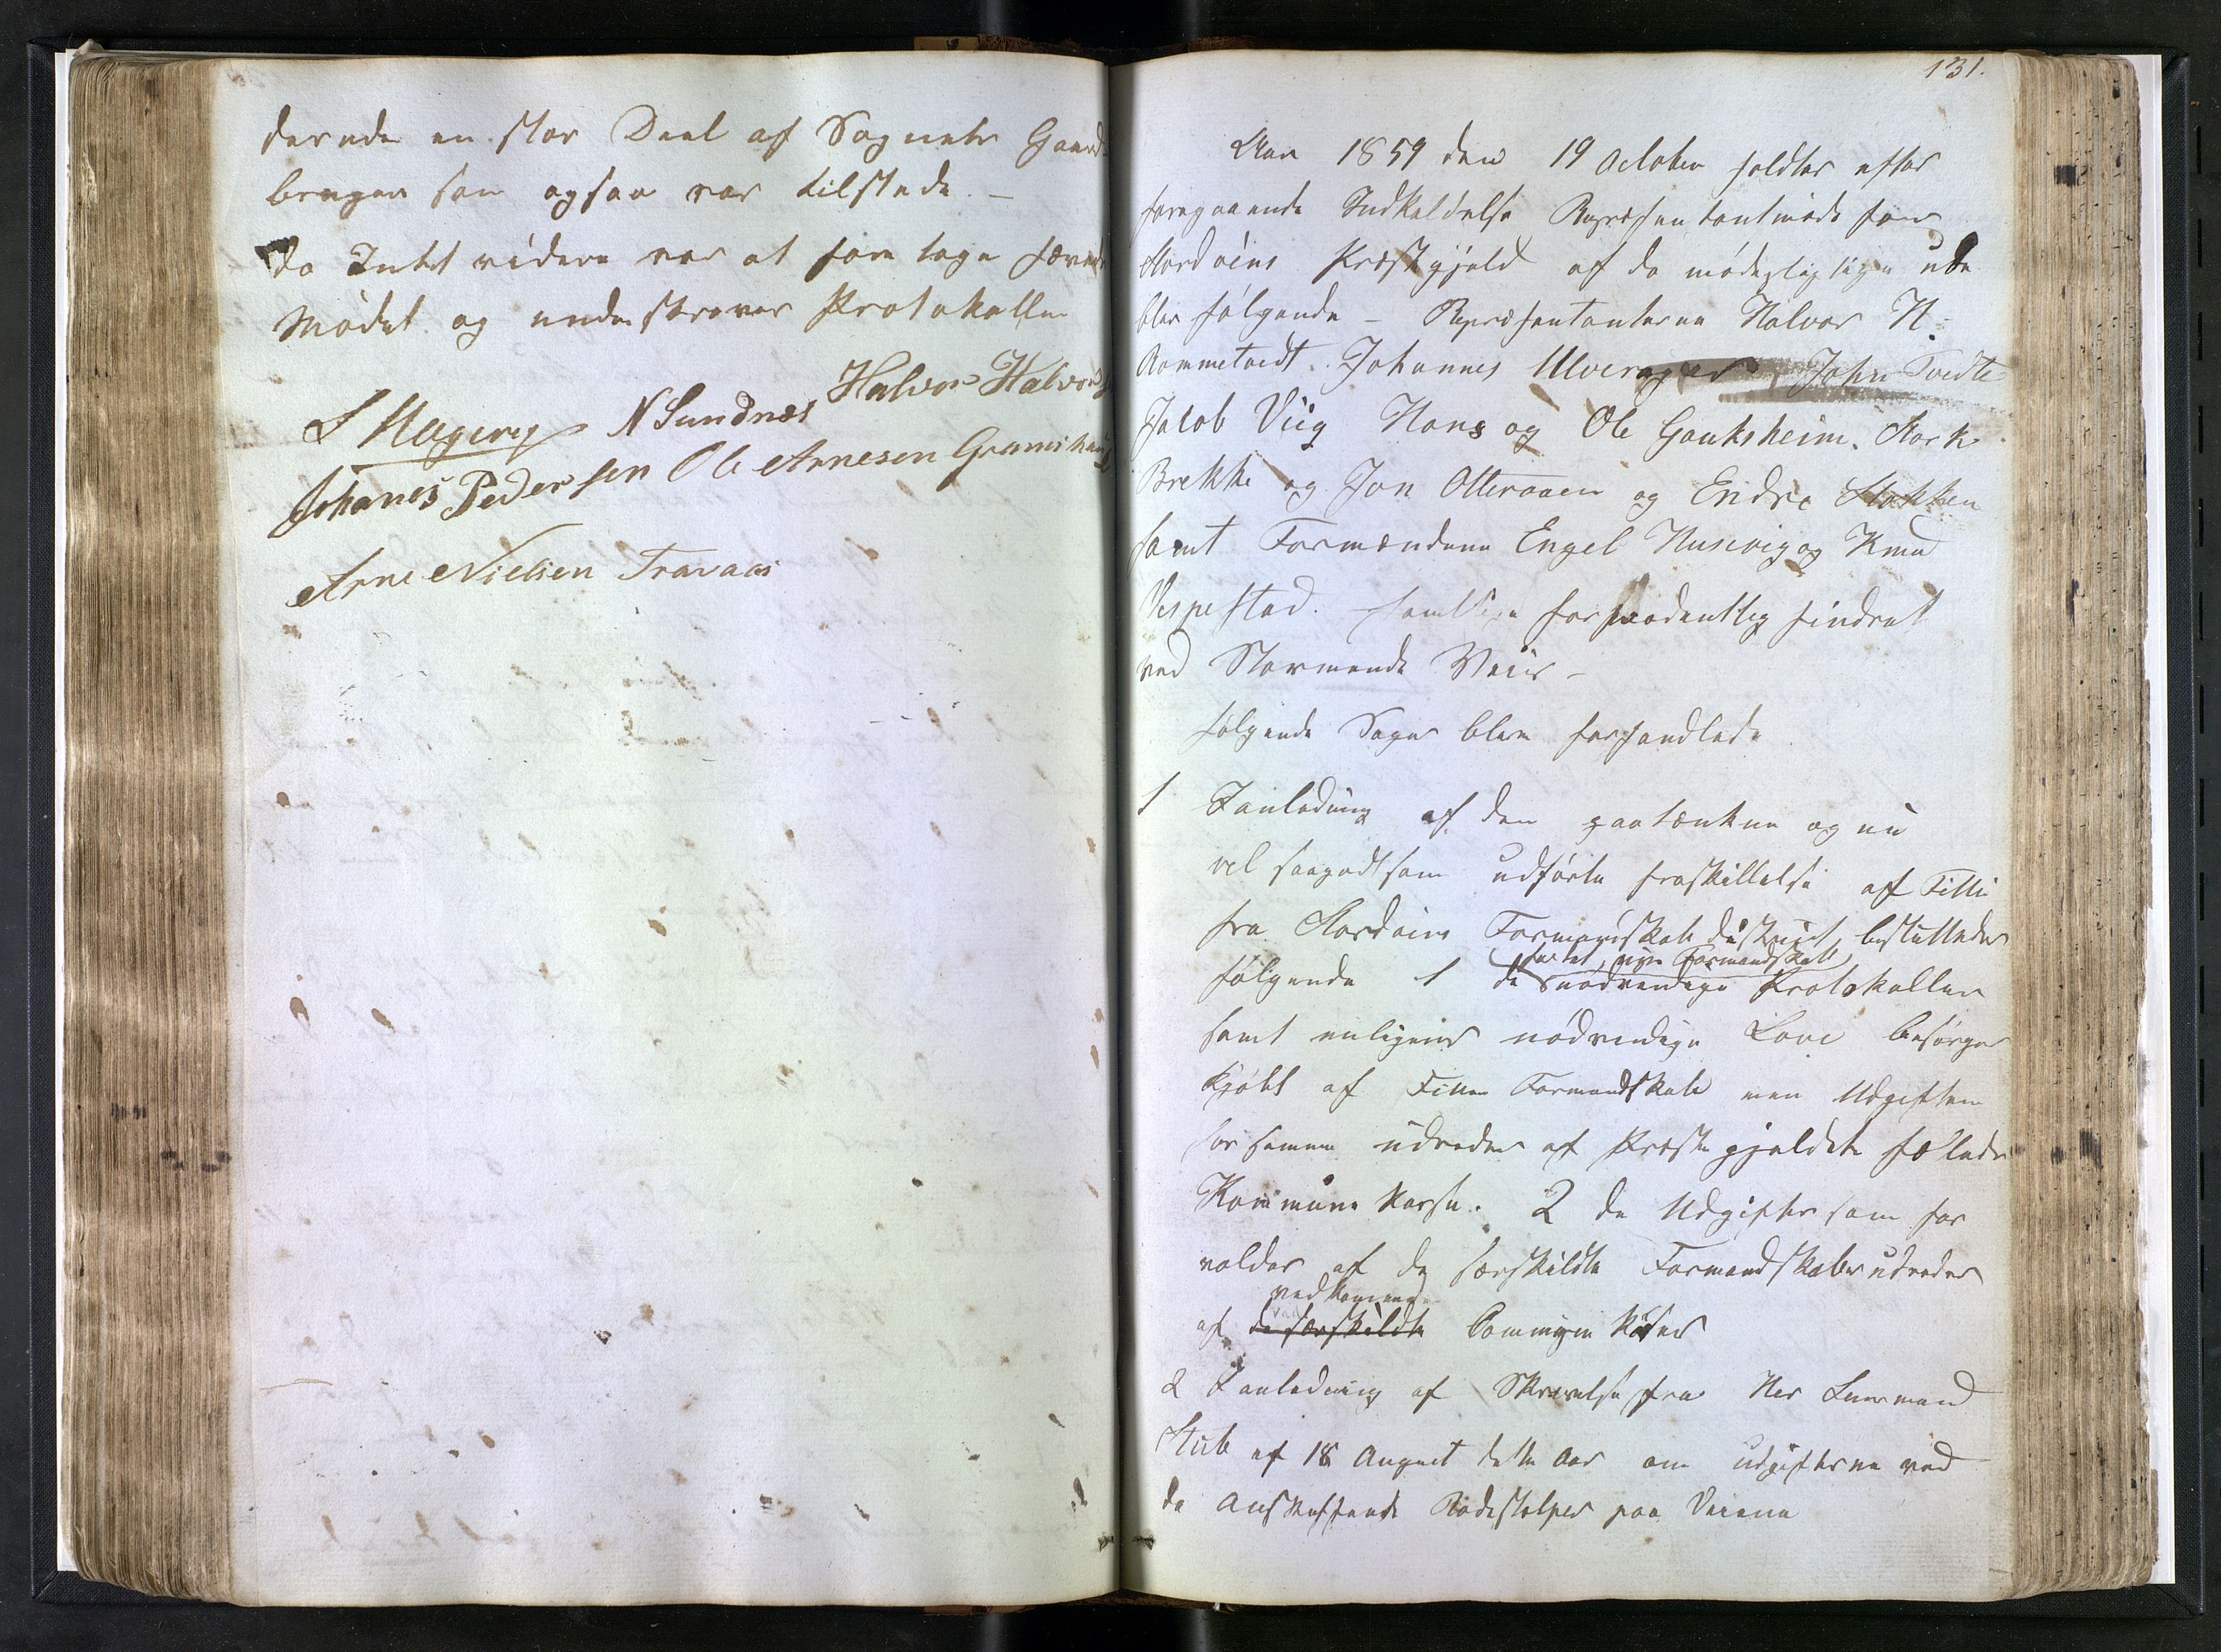 derude en stor Deel af Sognets Gaard
brugere som ogsaa var tilstede. –
da Intet videre var at foretage hæved
Mødet og underskrever Protokollen
Halvor Halvors
S Hageng N Sundnæs
Johanes Pedersen Ole Arnesen Grønshaug
Arne Nielsen Travaas
131.
Aar 1859 den 19 October holdtes efter
foregaaende Indkaldelse Repræsentantmøde for
Stordøens Præstegjeld af de mødepligtige ude
blev følgende – Repræsentanterne Halvor H
Rommetvedt. Johannes Ulverager John Tvedte
Jacob Viig Hans og Ole Gouksheim. Stork
Brekke og Jon Otteraaen og Endre Stokken
samt Formændene Engel Husevig og Knud
Vespestad. samtlige formodentlig hindret
ved Stormende Veir –
følgende Sager blev forhandlede
1 I anledning af den paatænkte og nu
vel saagodtsom udførte fraskillelse af Fitie
fra Stordøens Formandskabs district, besluttedes
for det nye Formandskab
følgende 1 de nødvendige Protokoller
samt enligere nødvendige Love besørges
kjøbt af Fitie Formandskab men Udgiften
for samme udredes af Præstegjeldets fælleds
Kommune Kasse. 2 de Udgifter som for
voldes af de særskildte Formandskaber udredes
vedkommende
af de særskildte Commune Kasser
2 I anledning af Skrivelse fra Her Lensmand
Stub af 18 August dette Aar om udgifterne ved
de Anskaffende Rodestolper paa Veiene